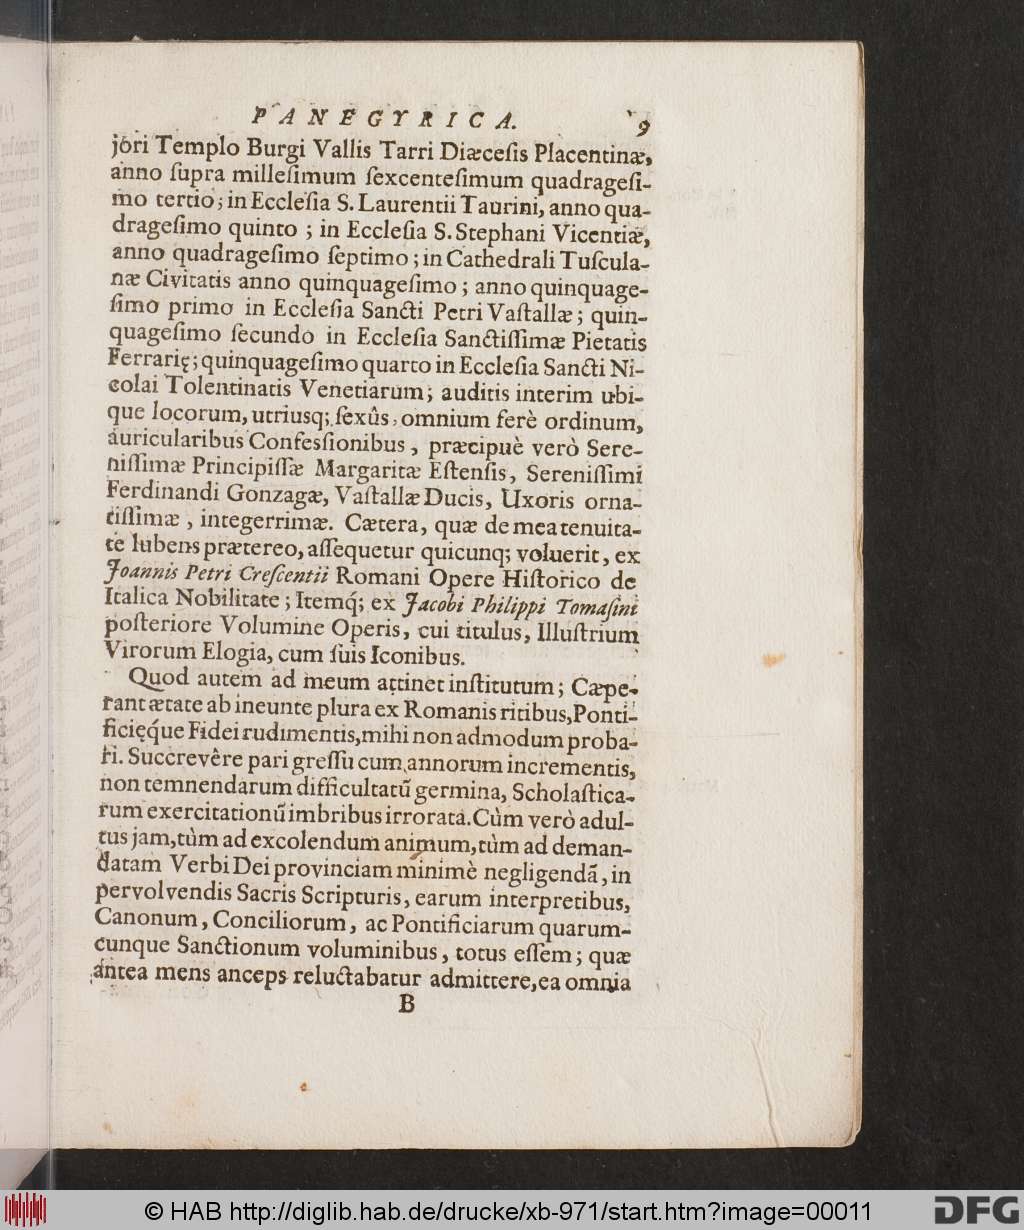 PANEGYRICA. 9
jori Templo Burgi Vallis Tarri Diæceſis Placentinæ,
anno ſupra milleſimum ſexcenteſimum quadrageſi-
mo tertio; in Eccleſia S. Laurentii Taurini, anno qua-
drageſimo quinto ; in Eccleſia S. Stephani Vicentiæ,
anno quadrageſimo ſeptimo ; in Cathedrali Tuſcula-
næ Civitatis anno quinquageſimo ; anno quinquage-
ſimo primo in Eccleſia Sancti Petri Vaſtallæ ; quin-
quageſimo ſecundo in Eccleſia Sanctiſſimæ Pietatis
Ferrarię; quinquageſimo quarto in Eccleſia Sancti Ni-
colai Tolentinatis Venetiarum ; auditis interim ubi-
que locorum, utriusq; ſexûs, omnium ferè ordinum,
auricularibus Confesſionibus , præcipuè verò Sere-
niſſimæ Principiſſæ Margaritæ Eſtenſis, Sereniſſimi
Ferdinandi Gonzagæ, Vaſtallæ Ducis, Uxoris orna-
tiſſimæ , integerrimæ. Cætera, quæ de mea tenuita-
te lubens prætereo, aſſequetur quicunq; voluerit, ex
Joannis Petri Creſcentii Romani Opere Hiſtorico de
Italica Nobilitate ; Itemq́; ex Jacobi Philippi Tomaſini
poſteriore Volumine Operis, cui titulus, Illuſtrium
Virorum Elogia, cum ſuis Iconibus.
Quod autem ad meum attinet inſtitutum ; Cæpe-
rant ætate ab ineunte plura ex Romanis ritibus, Ponti-
ficięq́ue Fidei rudimentis, mihi non admodum proba-
ri. Succrevêre pari greſſu cum annorum incrementis,
non temnendarum difficultatũ germina, Scholaſtica-
rum exercitationũ imbribus irrorata. Cùm verò adul-
tus jam, tùm ad excolendum animum, tùm ad deman-
datam Verbi Dei provinciam minimè negligendã, in
pervolvendis Sacris Scripturis, earum interpretibus,
Canonum, Conciliorum, ac Pontificiarum quarum-
cunque Sanctionum voluminibus, totus eſſem ; quæ
antea mens anceps reluctabatur admittere, ea omnia
B
© HAB http://diglib.hab.de/drucke/xb-971/start.htm?image=00011
DFG